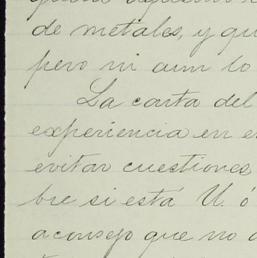 de metales, y qu
pero ni aun lo
La carta del
experiencia en e
evitar cuestiones
bre si está U. ó
aconsejo que no